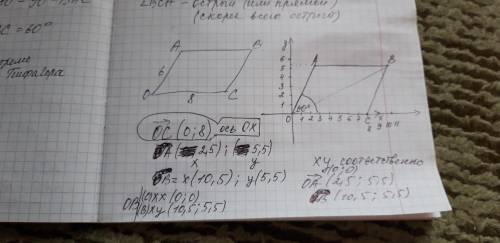 АС = 60°
∠ВСА - острый (или прямой)
(скорее всего острый)
Пифагора
A
B
6
O
8
C
y
6
5
4
3
2
1
0
A
B
60°
1 2 3 4 5 6 7 8 9 10 11
C
x
OC (0; 8), ось OX
OA (2,5); (5,5)
x y
OB = x (10,5); y (5,5)
x y соответственно
(0; 0)
OA (2,5; 5,5)
OB (10,5; 5,5)
OB (О) xy (0; 0)
(B) xy (10,5; 5,5)